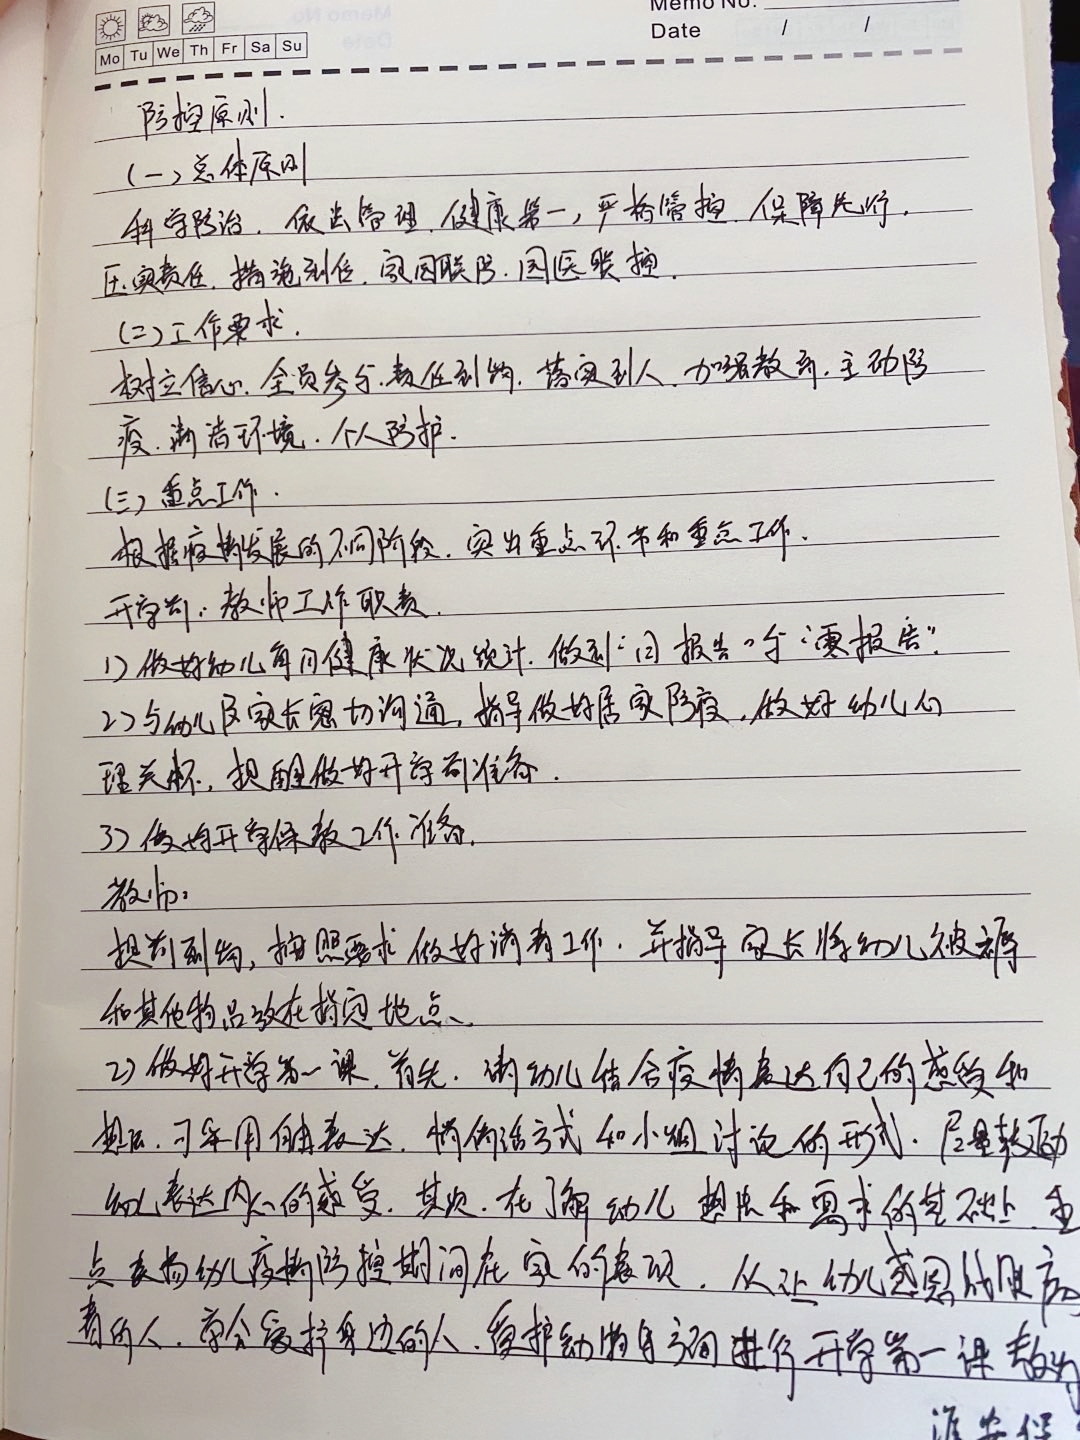 Memo No.
Date / /
Mo Tu We Th Fr Sa Su
防控原则.
(一)总体原则
科学防治.依法管理.健康第一,严格管控.保障先行.
压实责任.措施到位.家园联防.园医联控.
(二)工作要求.
树立信心.全员参与.责任到岗.落实到人.加强教育.主动防
疫.清洁环境.个人防护.
(三)重点工作.
根据疫情发展的不同阶段.突出重点环节和重点工作.
开学前:教师工作职责.
1)做好幼儿每日健康状况统计.做到“日报告”与“零报告”.
2)与幼儿及家长密切沟通,指导做好居家防疫,做好幼儿心
理关怀,提醒做好开学前准备.
3)做好开学保教工作准备.
教师:
提前到岗,按照要求做好消毒工作.并指导家长将幼儿被褥
和其他物品放在指定地点.
2)做好开学第一课.首先.请幼儿结合疫情表达自己的感受和
想法.可采用自由表达.情绪活方式和小组讨论的形式.尽量鼓励
幼儿表达内心的感受.其次.在了解幼儿想法和需求的基础上.重
点表扬幼儿疫情防控期间在家的表现.从让幼儿感恩战胜病
毒的人.学会爱护身边的人.爱护动物等方面进行开学第一课教
淮安保